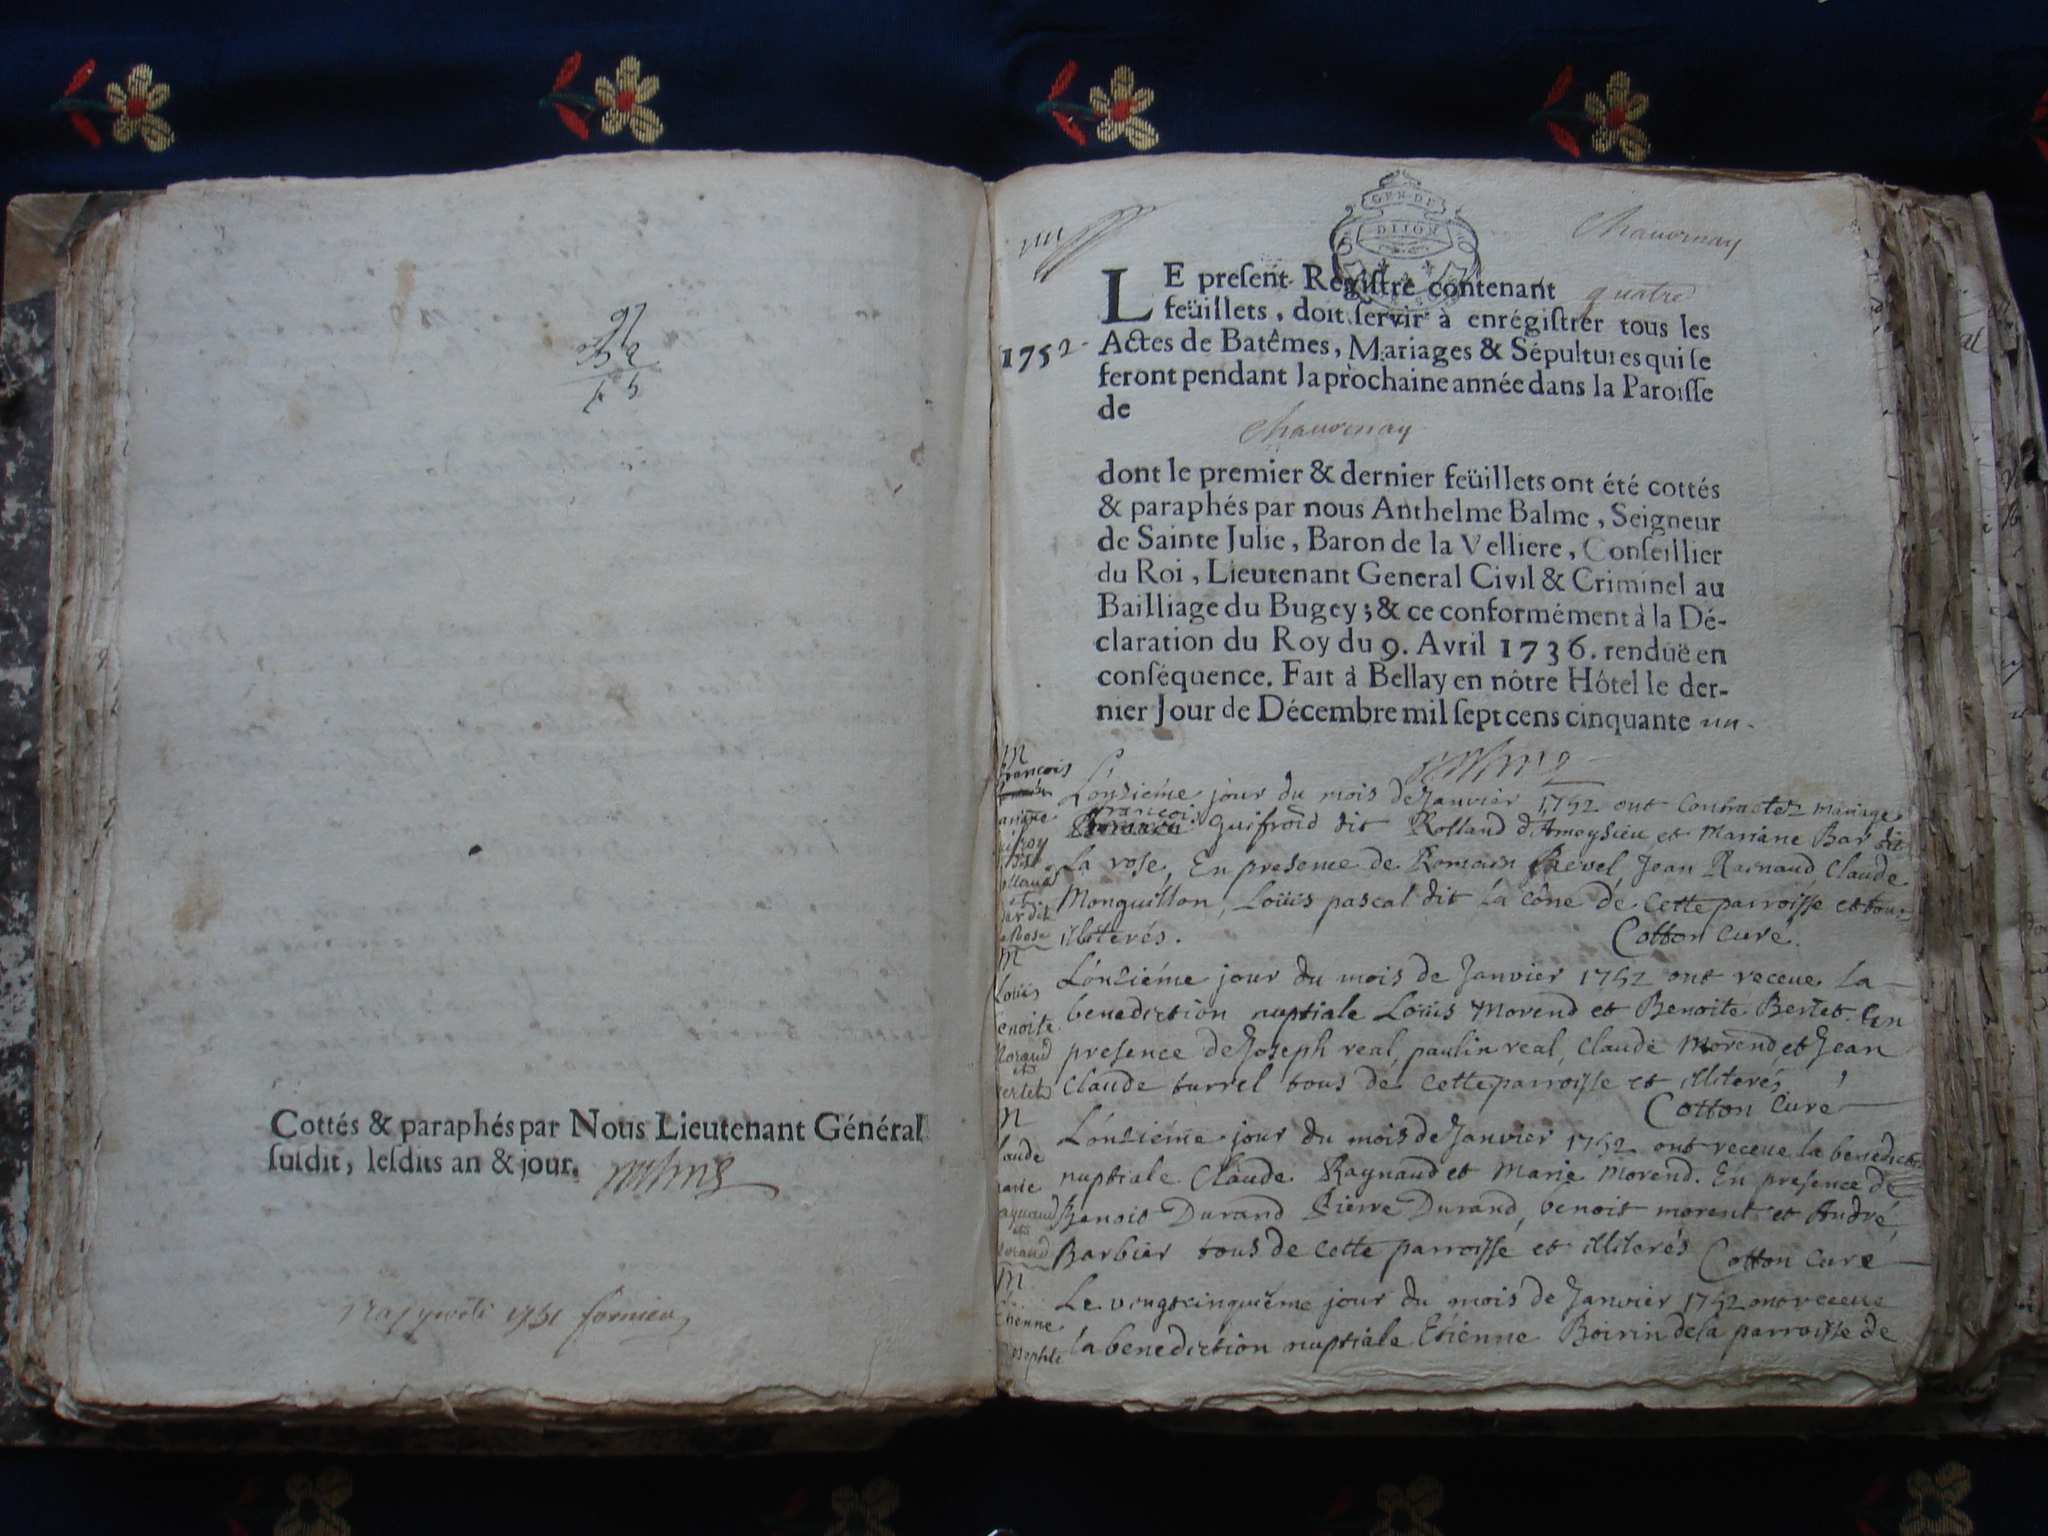 97
52
45
Cottés & paraphés par Nous Lieutenant Général
susdit, lesdits an & jour.
1751
GEN. DE
DIJON
Chavornay
LE preſent Regiſtre contenant quatre
feüillets, doit ſervir à enrégiſtrer tous les
1752
Actes de Batêmes, Mariages & Sépultures qui ſe
feront pendant la prochaine année dans la Paroiſſe
de
Chavornay
dont le premier & dernier feüillets ont été cottés
& paraphés par nous Anthelme Balme, Seigneur
de Sainte Julie, Baron de la Velliere, Conſeillier
du Roi, Lieutenant General Civil & Criminel au
Bailliage du Bugey; & ce conformément à la Dé-
claration du Roy du 9. Avril 1736. renduë en
conſéquence. Fait à Bellay en nôtre Hôtel le der-
nier Jour de Décembre mil ſept cens cinquante un.
M
francois
L'onzième jour du mois de Janvier 1752 ont Contractez mariage
francois Guifroid dit Rolland d'Ameysieu et Mariane Bar dit
La rose, En presence de Romain Revel, Jean Rainaud, Claude
Monguillon, Loüis pascal dit la cône de Cette parroisse et tous
illiterés. Cotton Curé.
M
Loüis
L'onzième jour du mois de Janvier 1752 ont receue La
benediction nuptiale Loüis Morend et Benoite Bertet. En
presence de Joseph real, paulin real, Claude Morend et Jean
Claude turrel tous de cette parroisse et illiterés
Cotton Curé
M
L'onzième jour du mois de Janvier 1752 ont receue la benedict.
nuptiale Claude Raynaud et Marie Morend. En presence de
Benoit Durand Pierre Durand, benoit morent et André
Barbier tous de cette parroisse et illiterés Cotton Curé
M
Le vingtcinquième jour du mois de Janvier 1752 ont receue
la benediction nuptiale Etienne Boirin de la parroisse de